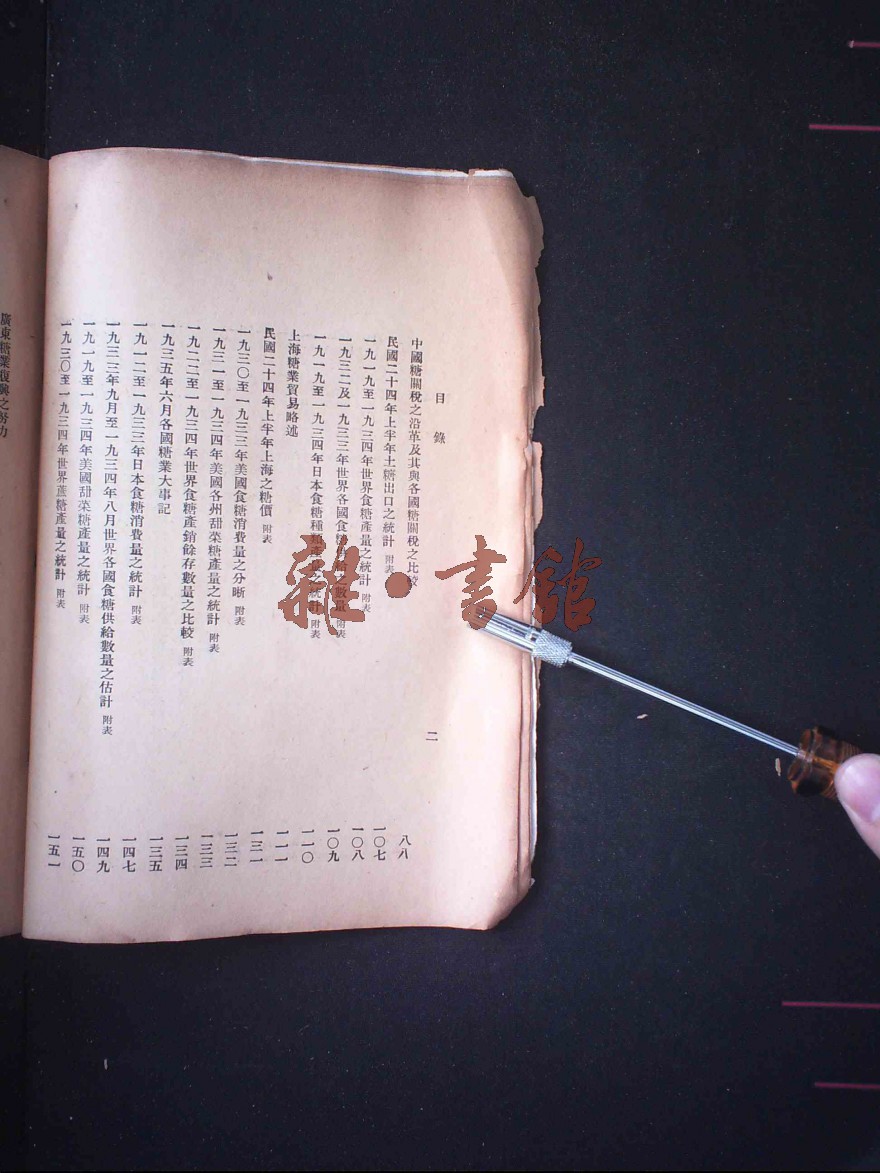 目錄
二
中國糖關稅之沿革及其與各國糖關稅之比較 八八
民國二十四年上半年土糖出口之統計 附表 一〇七
一九一九至一九三四年世界食糖產量之統計 附表 一〇八
一九三二及一九三三年世界各國食糖供給之數量 附表 一〇九
一九一九至一九三四年日本食糖種類產量之統計 附表 一一〇
上海糖業貿易略述 一一一
民國二十四年上半年上海之糖價 附表 一三一
一九三〇至一九三三年美國食糖消費量之分晰 附表 一三二
一九三一至一九三四年美國各州甜菜糖產量之統計 附表 一三三
一九二二至一九三四年世界食糖產銷餘存數量之比較 附表 一三四
一九三五年六月各國糖業大事記 一三五
一九一二至一九三三年日本食糖消費量之統計 附表 一四七
一九三三年九月至一九三四年八月世界各國食糖供給數量之估計 附表 一四九
一九一九至一九三四年美國甜菜糖產量之統計 附表 一五〇
一九三〇至一九三四年世界蔗糖產量之統計 附表 一五一
廣東糖業復興之努力
雜·書館